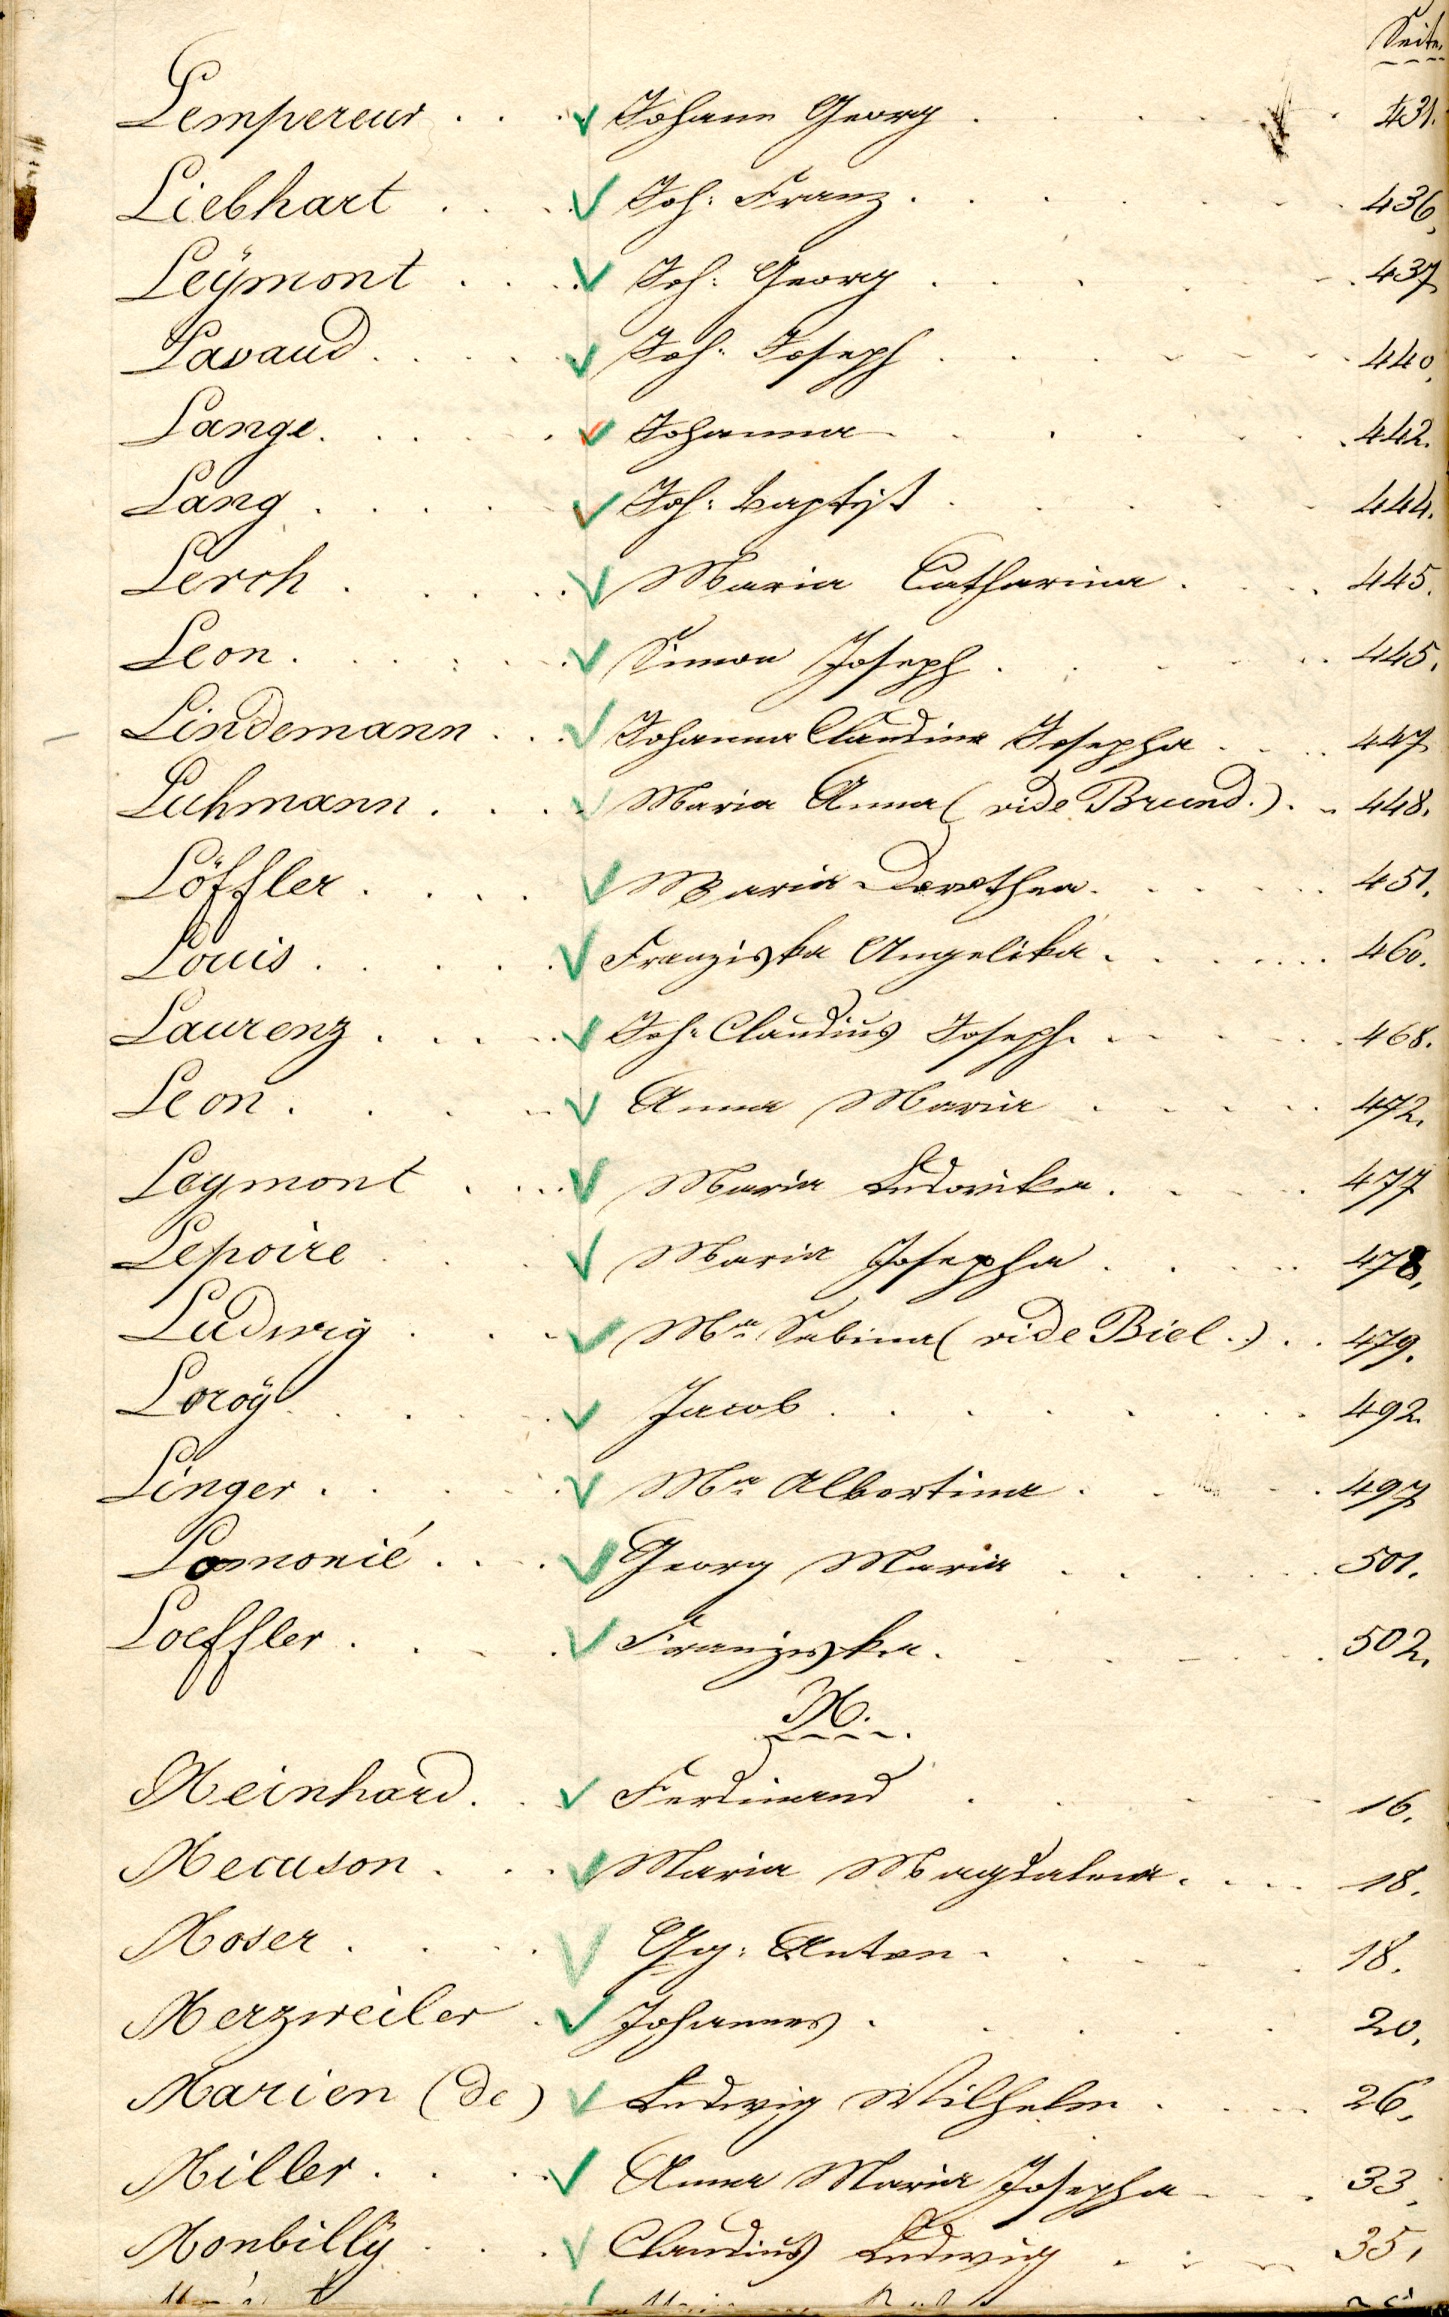 Seite
Lempereur . . . Johann Georg . . . . . 431.
Liebhart . . . Joh: Franz . . . . . 436,
Leÿmont . . . Joh: Georg . . . . . 437
Lavaud . . . . Joh: Joseph . . . . . 440,
Lange . . . . Johanna . . . . . 442.
Lang . . . . Joh: Baptist . . . . . 444.
Lerch . . . . Maria Catharina . . . 445.
Leon . . . . Simon Joseph . . . . 445.
Lindemann . . . Johanna Claudina Josepha . . . 447
Luhmann . . . Maria Anna (vide Brund.) . . 448.
Löffler . . . . Maria Dorothea . . . . 451.
Louis . . . . . Franziska Angelika . . . . 460.
Laurenz . . . . Joh: Claudius Joseph . . . . 468.
Leon . . . . Anna Maria . . . . 472.
Leymont . . . Maria Ludovika . . . . 477
Lepoire . . . Maria Josepha . . . . 478,
Ludwig . . . Mª Sabina (vide Biel..) . . 479.
Loroÿ . . . . Jacob . . . . . 492.
Linger . . . . Mª Albertina . . . . 497
Lamonié . . . Georg Maria . . . . 501.
Loeffler . . . . Franziska . . . . 502.
M.
Meinhard . . Ferdinand . . . . 16.
Mecuson . . . Maria Magdalena . . . 18.
Moser . . . . Gg: Anton . . . . 18.
Merzweiler . . Johannes . . . . 20.
Marien (de) Ludwig Wilhelm . . . 26,
Miller . . . . Anna Maria Josepha . . 33,
Monbillÿ . . . Claudius Ludwig . . . 35,